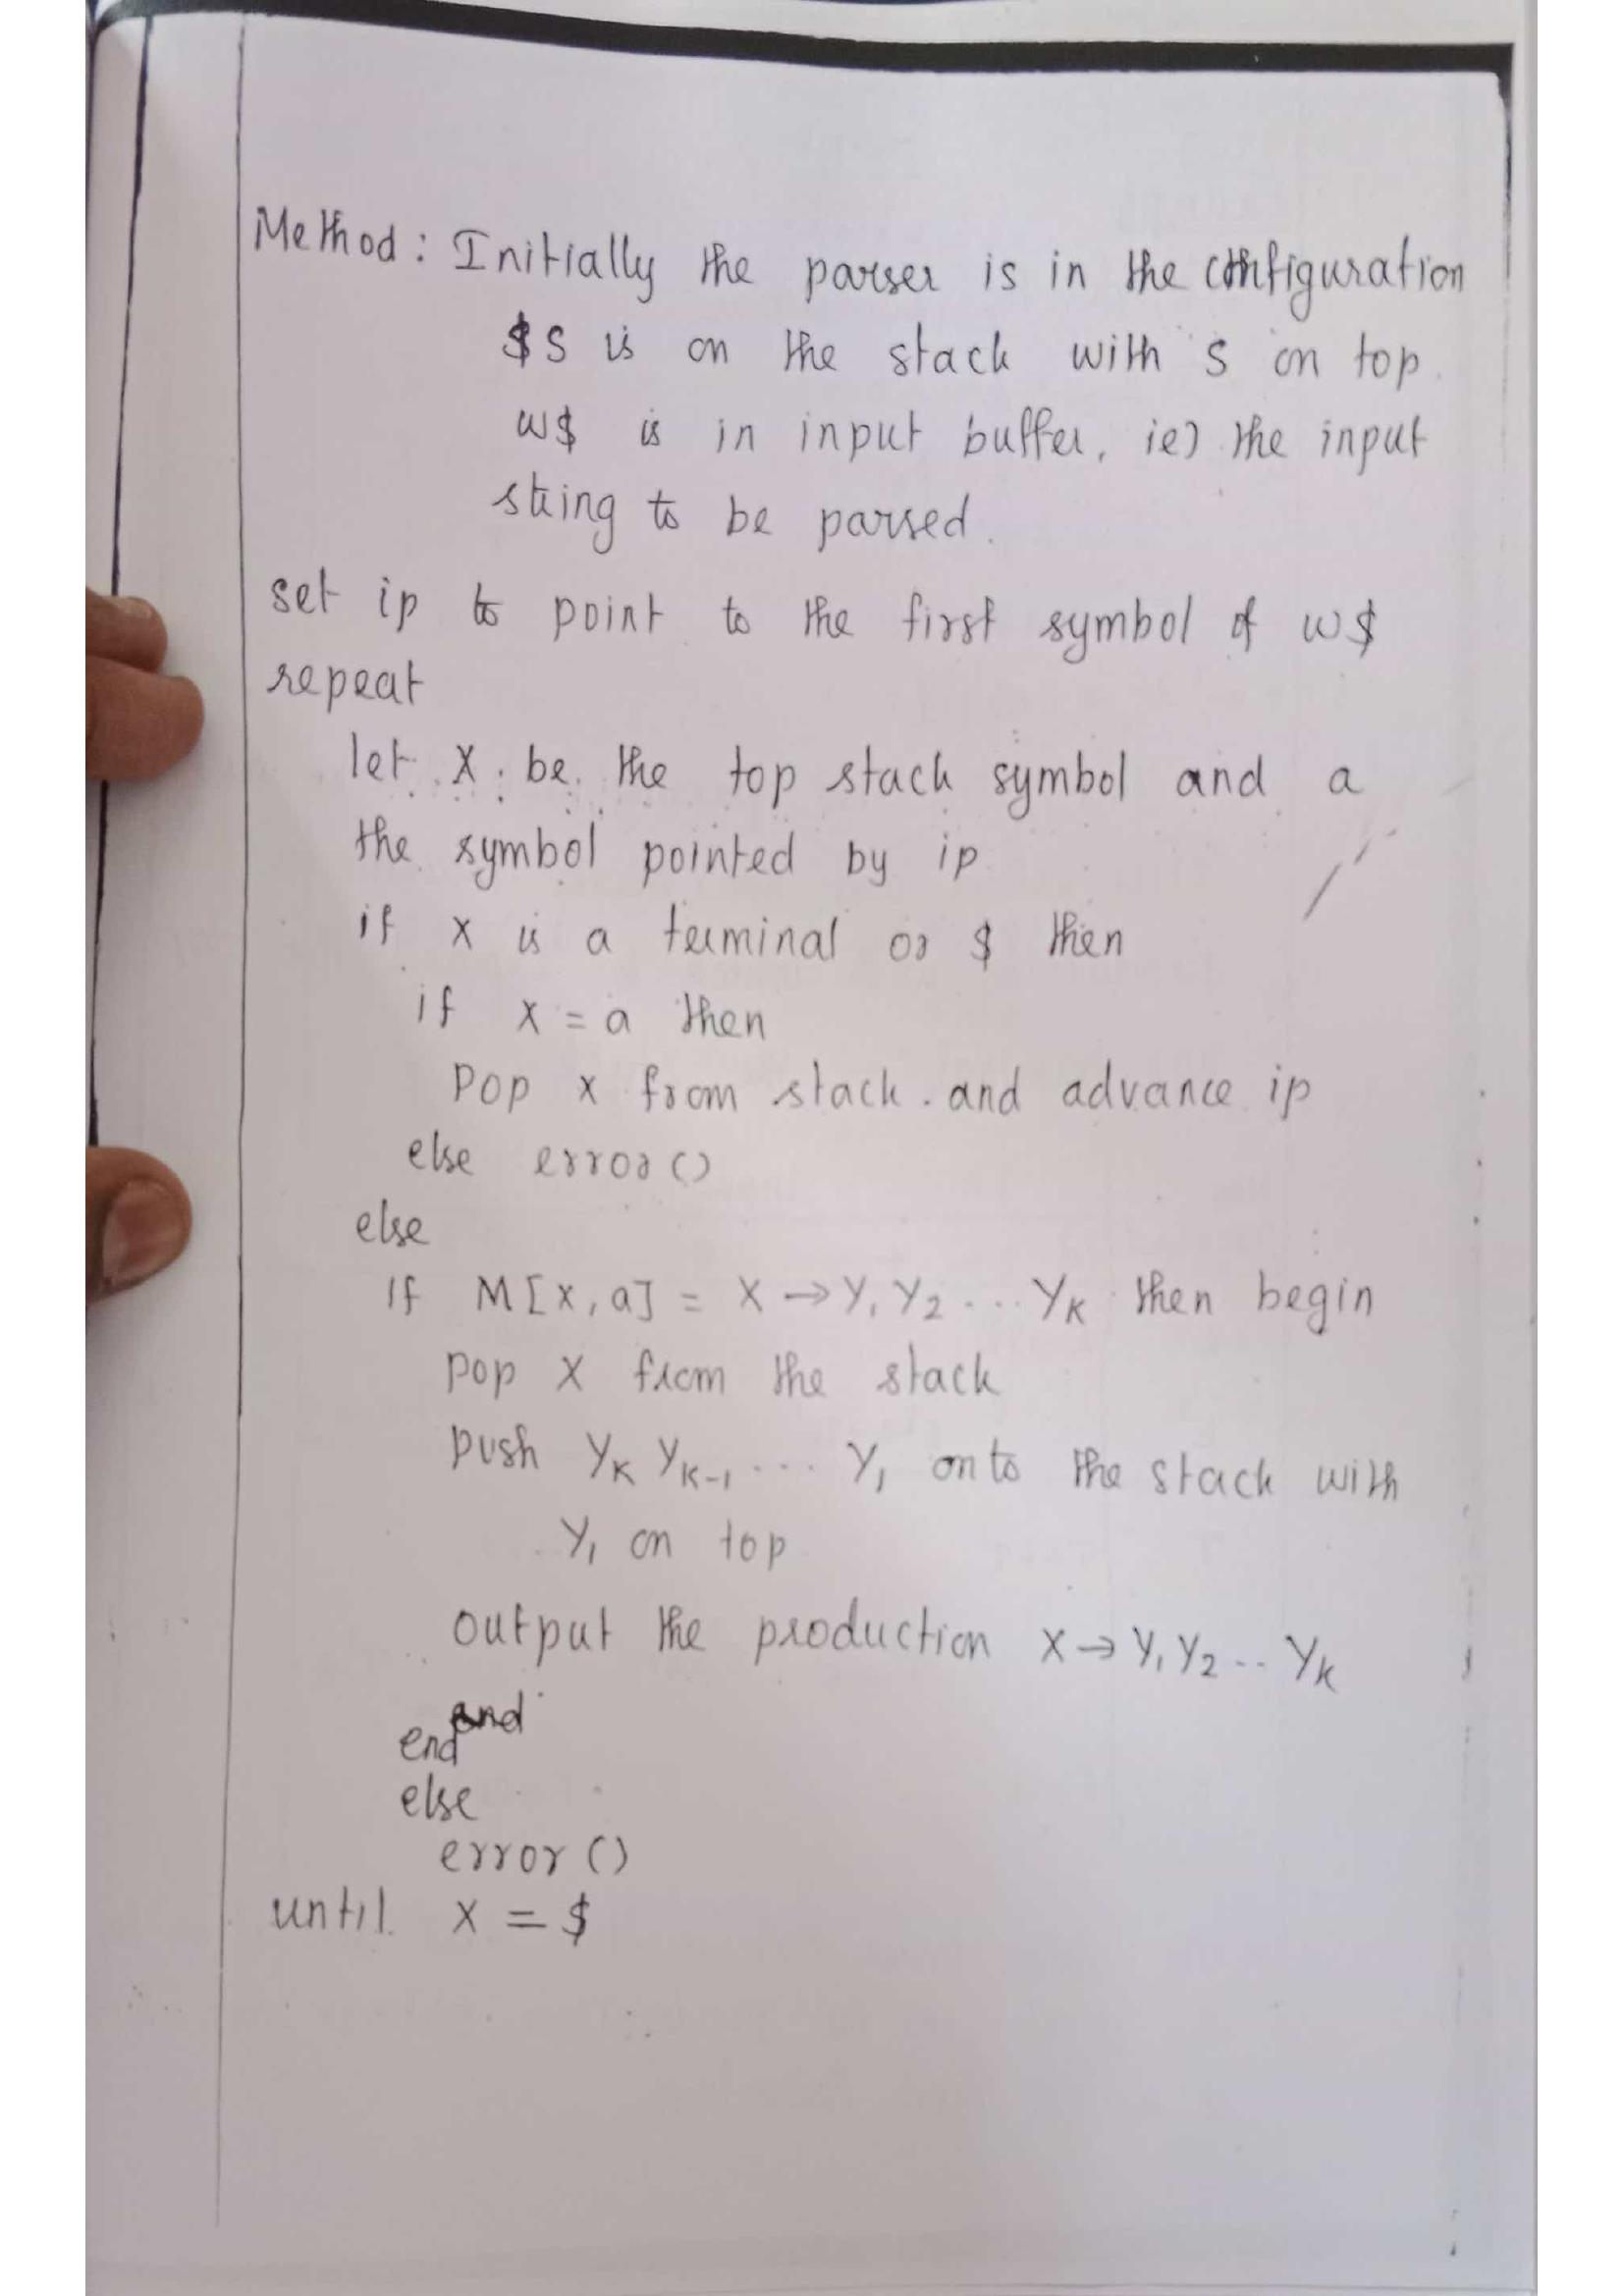 Method : Initially the parser is in the configuration
$S is on the stack with S on top.
w$ is in input buffer, ie) the input
string to be parsed.
set ip to point to the first symbol of w$
repeat
let X be the top stack symbol and a
the symbol pointed by ip
if X is a terminal or $ then
if X = a then
Pop X from stack and advance ip
else error()
else
If M[X, a] = X → Y₁ Y₂ ... Yₖ then begin
pop X from the stack
push Yₖ Yₖ₋₁ ... Y₁ onto the stack with
Y₁ on top
output the production X → Y₁ Y₂ .. Yₖ
end
end
else
error ()
until X = $